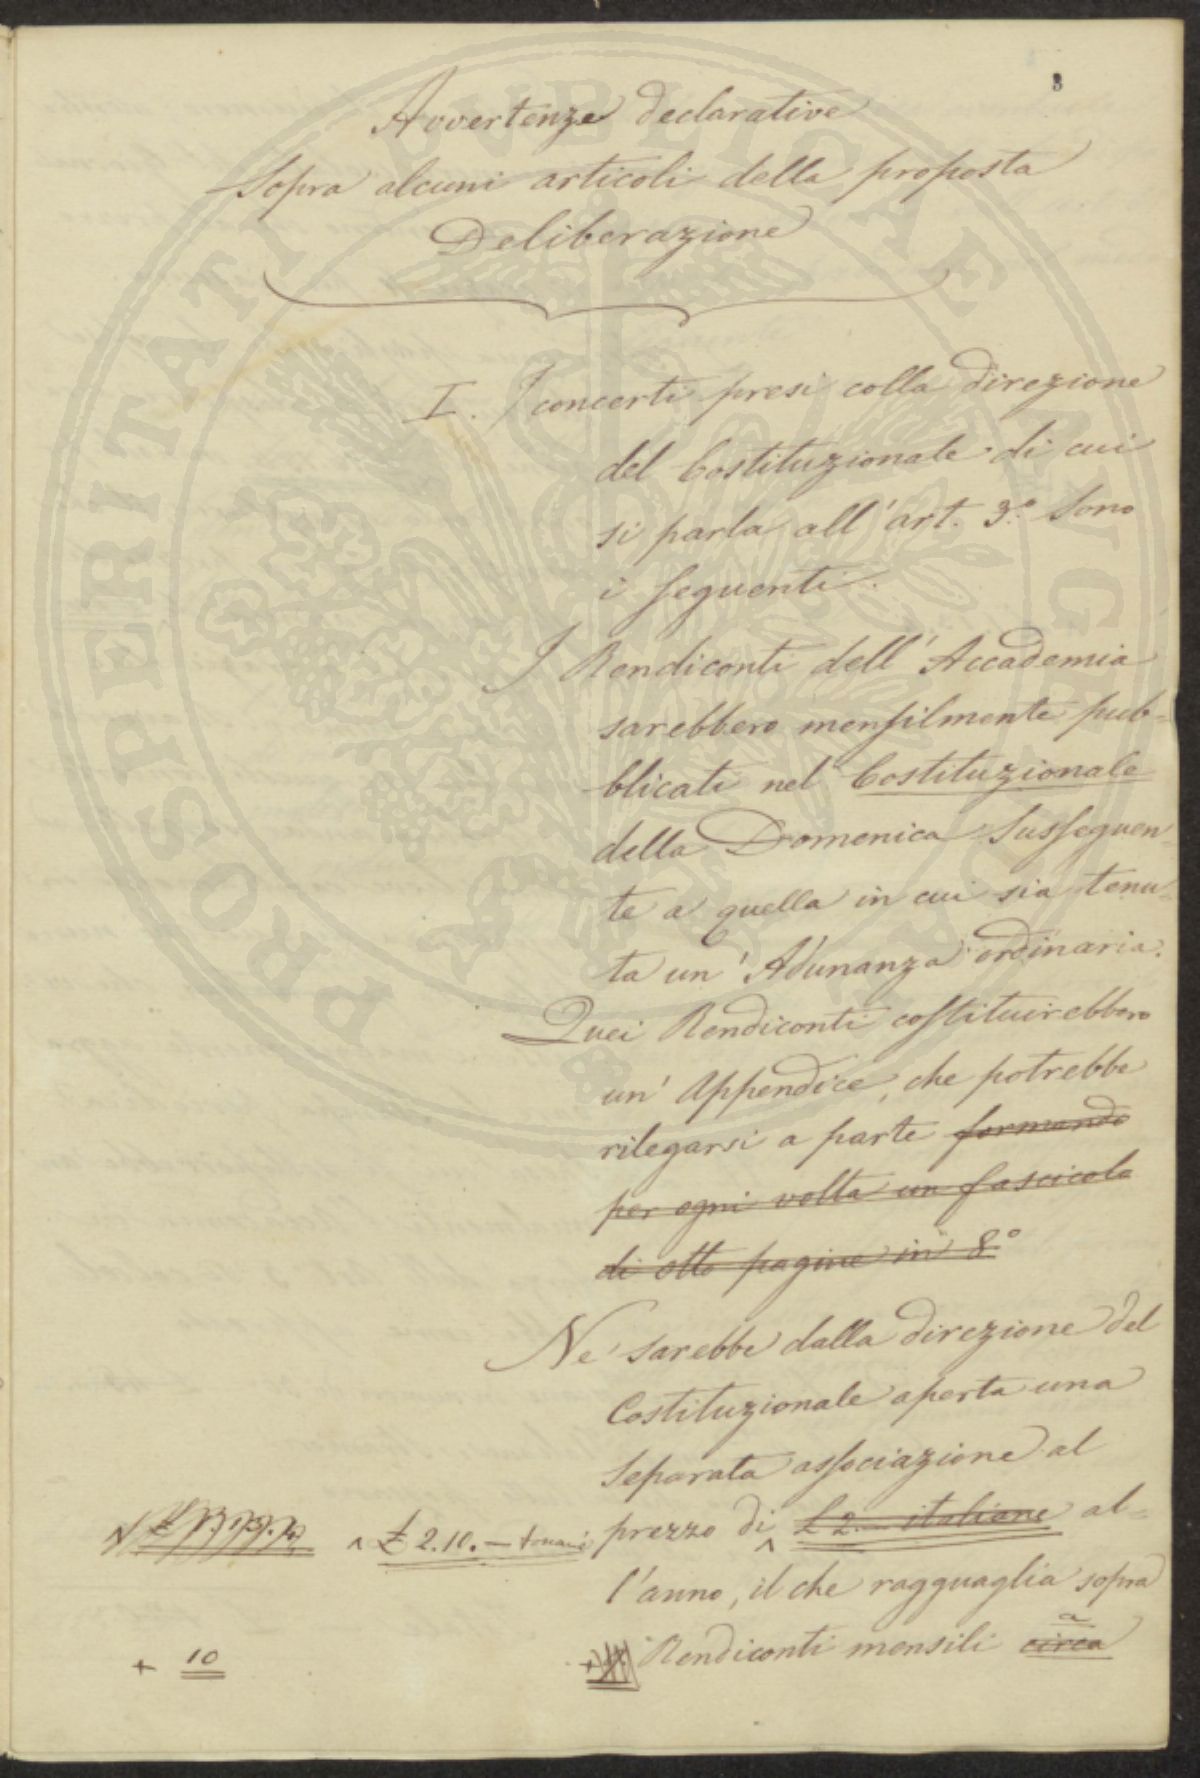 8
Avvertenze declarative
Sopra alcuni articoli della proposta
Deliberazione
I. I concerti presi colla direzione
del Costituzionale di cui
si parla all'art. 3.° sono
i seguenti.
I Rendiconti dell'Accademia
sarebbero mensilmente pub=
blicati nel Costituzionale
della Domenica Susseguen=
te a quella in cui sia tenu=
ta un'Adunanza ordinaria.
Quei Rendiconti costituirebbero
un'Appendice, che potrebbe
rilegarsi a parte formando
per ogni volta un fascicolo
di otto pagine in 8°
Ne sarebbe dalla direzione del
Costituzionale aperta una
Separata associazione al
^ £ 2.10.— toscani prezzo di ^ £ 2.— italiane al=
l'anno, il che ragguaglia sopra
+ 10 Rendiconti mensili circa a
PROSPERITATI PUBLICAE AUGENDAE